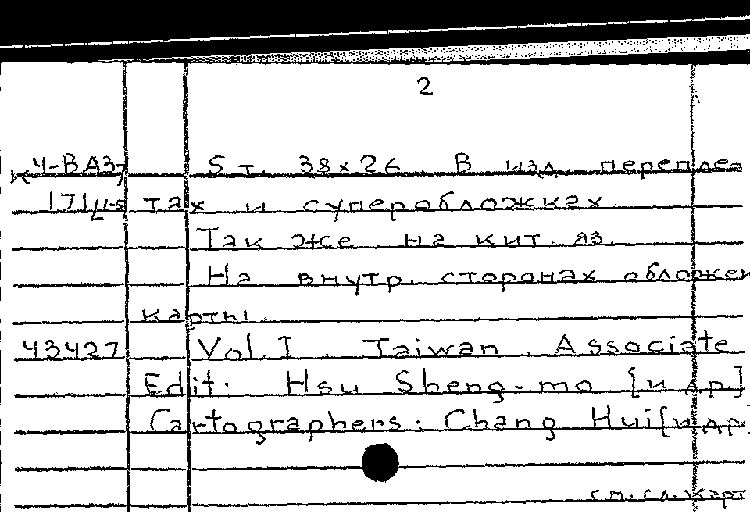 2
Ч-ВАЗ 5 т. 38×26. В изд. перепле-
171/1-5 тах и суперобложках
Так же на кит. яз.
На внутр. сторонах обложек
карты.
43427 Vol. I. Taiwan. Associate
Edit.: Hsu Sheng-mo [и др.]
Cartographers: Chang Hui [и др.
см. сл. карт